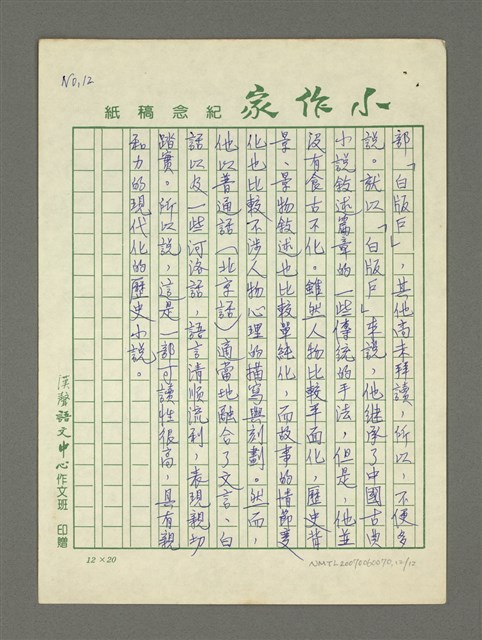 No.12
小作家紀念稿紙
部「白版戶」，其他尚未拜讀，所以，不便多
說。就以「白版戶」來說，他繼承了中國古典
小說敘述篇章的一些傳統的手法，但是，他並
沒有食古不化。雖然人物比較平面化，歷史背
景、景物敘述也比較單純化，而故事的情節變
化也比較不涉人物心理的描寫與刻劃。然而，
他以普通話（北京話）適當地融合了文言、白
話以及一些河洛話，語言清順流利，表現親切
踏實。所以說，這是一部可讀性很高，具有親
和力的現代化的歷史小說。
漢聲語文中心作文班 印贈
12×20
NMTL20070060070,12/12